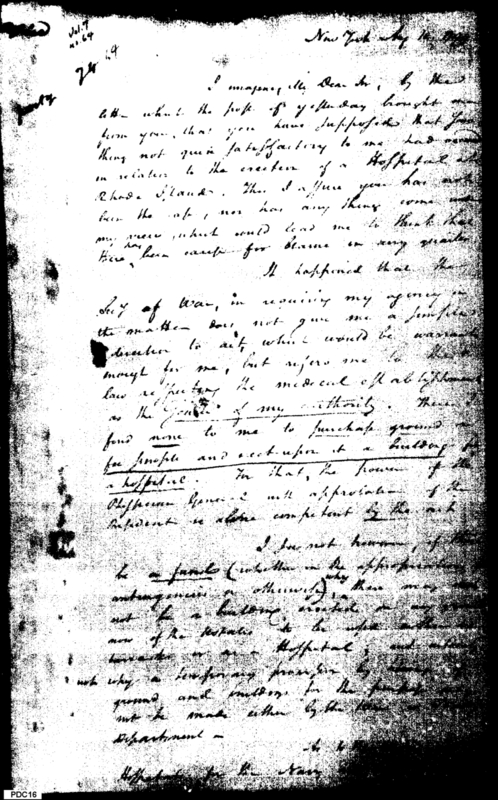 Vol. 7
no. 64
New York Aug 16
I imagine, My Dear Sir, by the
letter which the post of yesterday brought me
from you, that you have supposed that some
thing not quite satisfactory to me had
in relation to the erection of a Hospital at
Rhode Island. This I assure you has not
been the case, nor has any thing come
my view which would lead me to think that
there has been cause for blame in any quarter
It happened that the
Secy of War, in requiring my agency in
the matter does not give me a simple
direction to act, which would be warrant
enough for me, but refers me to the
law respecting the medical establishment
as the of my authority. There I
find none to me to purchase ground in
fee simple and erect upon it a building for
a hospital. For that, the power of the
Physician General with approbation of the
President is alone competent by the act
I see not however, if there
be a fund (whether in the appropriation
contingencies or otherwise) why there may
not be a building erected on any ground
now of the UStates to be used
hereafter as a Hospital; and
not why a temporary provision by
ground and buildings for the
not be made either by the
Department –
As to
Hospital for the Navy
PDC16